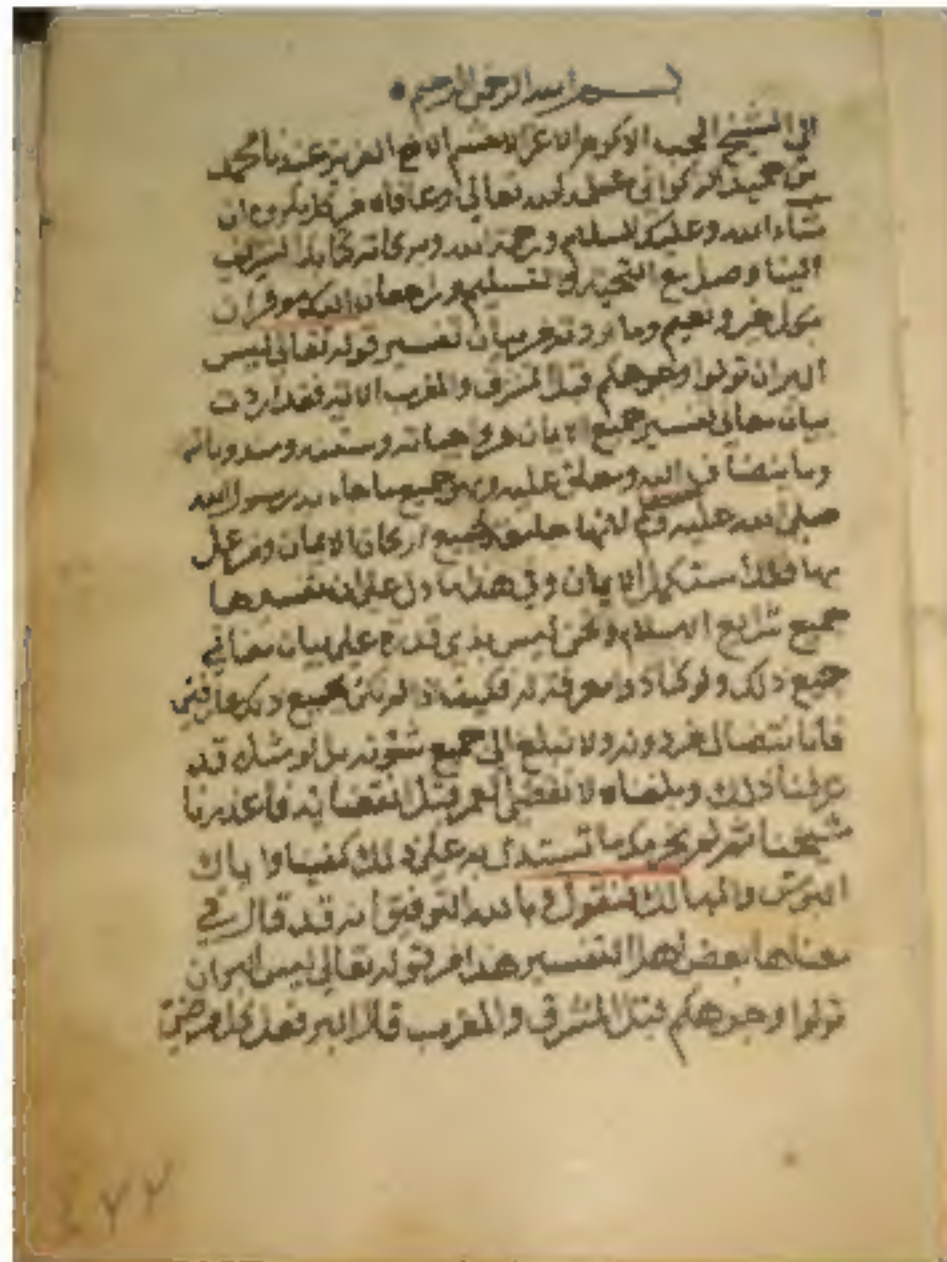 بسم الله الرحمن الرحيم
الى الشيخ المحب الاكرم الاعز الاحشم الاخ العزيز عندنا محمد
بن الزكواني الله تعالى وعافاه من كل مكروه ان
شاء الله وعليك السلام ورحمة الله وبركاته كتابك الشريف
الينا وصل مع التحية والتسليم اليك
وما اردته من بيان تفسير قوله تعالى ليس
البر ان تولوا وجوهكم قبل المشرق والمغرب الاية فقد اردت
بيان معاني تفسير جميع الايمان من واجباته وسننه ومندوباته
وما ينضاف اليه عليه وهو جميع ما جاء به رسول الله
صلى الله عليه وسلم لانها جميع اركان الايمان ومن عمل
بها فقد استكمل الايمان وفي هذا ما دل على ان تفسيرها
جميع شرايع الاسلام ونحن ليس بذي قدرة على بيان معاني
جميع ذلك ولو كنا ذوا معرفة له فكيف اذا لم نكن بجميع ذلك عارفين
فانا من دونه ولا نبلغ الى جميع بل لو قد
عرفنا ذلك وبلغناه لانقضى العمر قبل انقضايه فاعذرنا
شيخنا ما تستدل به على ذلك
والمهالك فنقول وبالله التوفيق انه قد قال في
معناها بعض اهل التفسير هذا من قوله تعالى ليس البر ان
تولوا وجوهكم قبل المشرق والمغرب قال البر فعل كل
٤٢٢